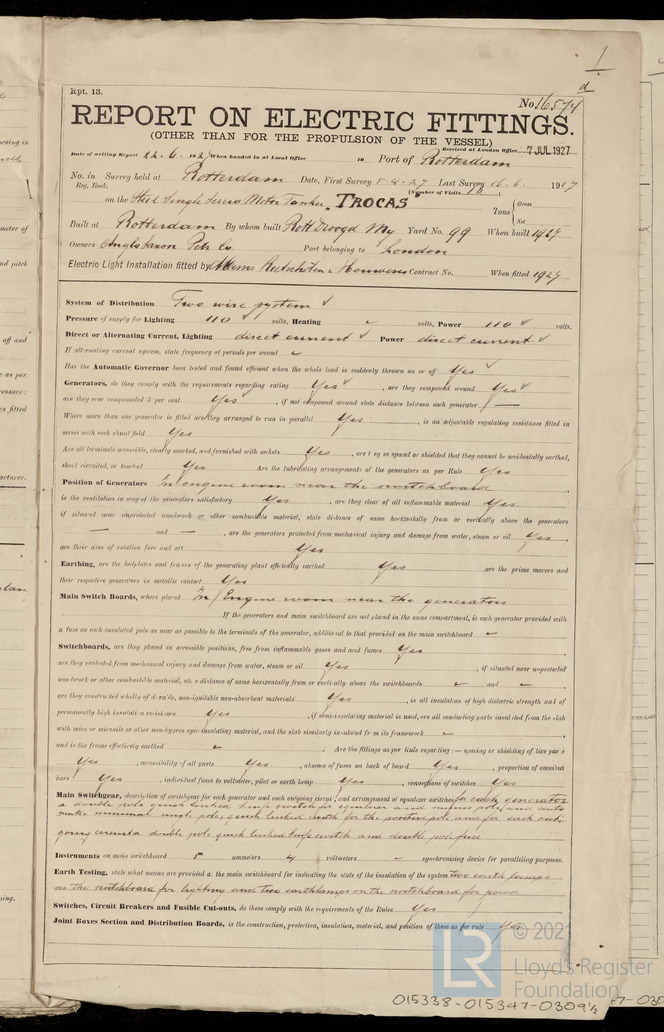 1
d
Rpt. 13.
No 16574
REPORT ON ELECTRIC FITTINGS.
(OTHER THAN FOR THE PROPULSION OF THE VESSEL)
Received at London Office 7 JUL 1927
Date of writing Report 22.6.1927 When handed in at Local Office 19 Port of Rotterdam
No. in Survey held at Rotterdam Date, First Survey 5-4-27 Last Survey 16.6. 1927
Reg. Book. (Number of Visits
on the Steel Single Screw Motor Tanker "TROCAS" Tons { Gross Net
Built at Rotterdam By whom built Rott Droogd My Yard No. 99 When built 1927
Owners Anglo Saxon Petr Co Port belonging to London
Electric Light Installation fitted by Contract No. When fitted 1927
System of Distribution Two wire system
Pressure of supply for Lighting 110 volts, Heating - volts, Power 110 volts.
Direct or Alternating Current, Lighting direct current Power direct current
If alternating current system, state frequency of periods per second -
Has the Automatic Governor been tested and found efficient when the whole load is suddenly thrown on or off Yes
Generators, do they comply with the requirements regarding rating Yes , are they compound wound Yes
are they over compounded 5 per cent. Yes , if not compound wound state distance between each generator -
Where more than one generator is fitted are they arranged to run in parallel Yes , is an adjustable regulating resistance fitted in
series with each shunt field Yes
Are all terminals accessible, clearly marked, and furnished with sockets Yes , are they so spaced or shielded that they cannot be accidentally earthed,
short circuited, or touched Yes Are the lubricating arrangements of the generators as per Rule Yes
Position of Generators In engine room near the switchboard
is the ventilation in way of the generators satisfactory Yes , are they clear of all inflammable material Yes
if situated near unprotected woodwork or other combustible material, state distance of same horizontally from or vertically above the generators
- and - , are the generators protected from mechanical injury and damage from water, steam or oil Yes
are their axes of rotation fore and aft Yes
Earthing, are the bedplates and frames of the generating plant efficiently earthed Yes are the prime movers and
their respective generators in metallic contact Yes
Main Switch Boards, where placed In Engine room near the generators
If the generators and main switchboard are not placed in the same compartment, is each generator provided with
a fuse on each insulated pole as near as possible to the terminals of the generator, additional to that provided on the main switchboard -
Switchboards, are they placed in accessible positions, free from inflammable gases and acid fumes Yes
are they protected from mechanical injury and damage from water, steam or oil Yes , if situated near unprotected
woodwork or other combustible material, state distance of same horizontally from or vertically above the switchboards - and -
are they constructed wholly of durable, non-ignitable non-absorbent materials Yes , is all insulation of high dielectric strength and of
permanently high insulation resistance Yes , if semi-insulating material is used, are all conducting parts insulated from the slab
with mica or micanite or other non-hygroscopic insulating material, and the slab similarly insulated from its framework -
and is the frame effectively earthed - . Are the fittings as per Rule regarding:- spacing or shielding of live parts
Yes , accessibility of all parts Yes , absence of fuses on back of board Yes , proportion of omnibus
bars Yes , individual fuses to voltmeter, pilot or earth lamp Yes , connections of switches Yes
Main Switchgear, description of switchgear for each generator and each outgoing circuit, and arrangement of equalizer switches for each generator
a double pole quick linked knife switch for equalizer and minus pole, and auto
matic minimum single pole, quick linked switch for the positive pole and for each out
going circuit a double pole quick linked knife switch and double pole fuse
Instruments on main switchboard 5 ammeters 4 voltmeters - synchronizing device for paralleling purposes.
Earth Testing, state what means are provided at the main switchboard for indicating the state of the insulation of the system two earth lamps
on the switchboard for lighting and two earthlamps on the switchboard for power.
Switches, Circuit Breakers and Fusible Cut-outs, do these comply with the requirements of the Rules Yes
Joint Boxes Section and Distribution Boards, is the construction, protection, insulation, material, and position of these as per rule Yes
LR
© 2021
Lloyd's Register
Foundation
015338-015347-0309 1/2